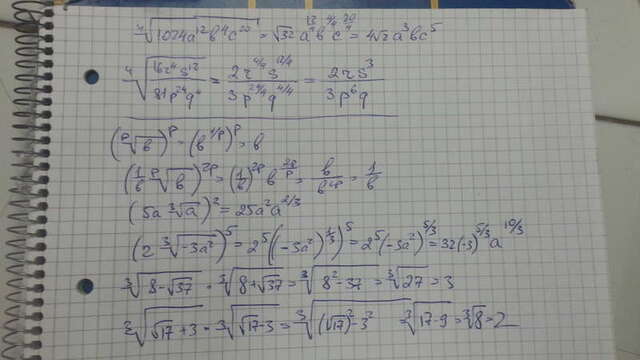 ∜(1024a¹²b⁴c²⁰) = √32 a^(12/4) b^(4/4) c^(20/4) = 4√2 a³bc⁵
∜(16r⁴s¹²/81p²⁴q⁴) = 2r^(4/4)s^(12/4)/3p^(24/4)q^(4/4) = 2rs³/3p⁶q
(ᵖ√b)ᵖ = (b^(1/p))ᵖ = b
(1/b ᵖ√b)²ᵖ = (1/b)²ᵖ b^(2p/p) = b/b²ᵖ = 1/b
(5a ∛a)² = 25a²a^(2/3)
(2 ∛(-3a²))⁵ = 2⁵((-3a²)^(1/3))⁵ = 2⁵(-3a²)^(5/3) = 32(-3)^(5/3) a^(10/3)
∛(8-√37) · ∛(8+√37) = ∛(8²-37) = ∛27 = 3
∛(√17+3) · ∛(√17-3) = ∛((√17)²-3²) ∛(17-9) = ∛8 = 2